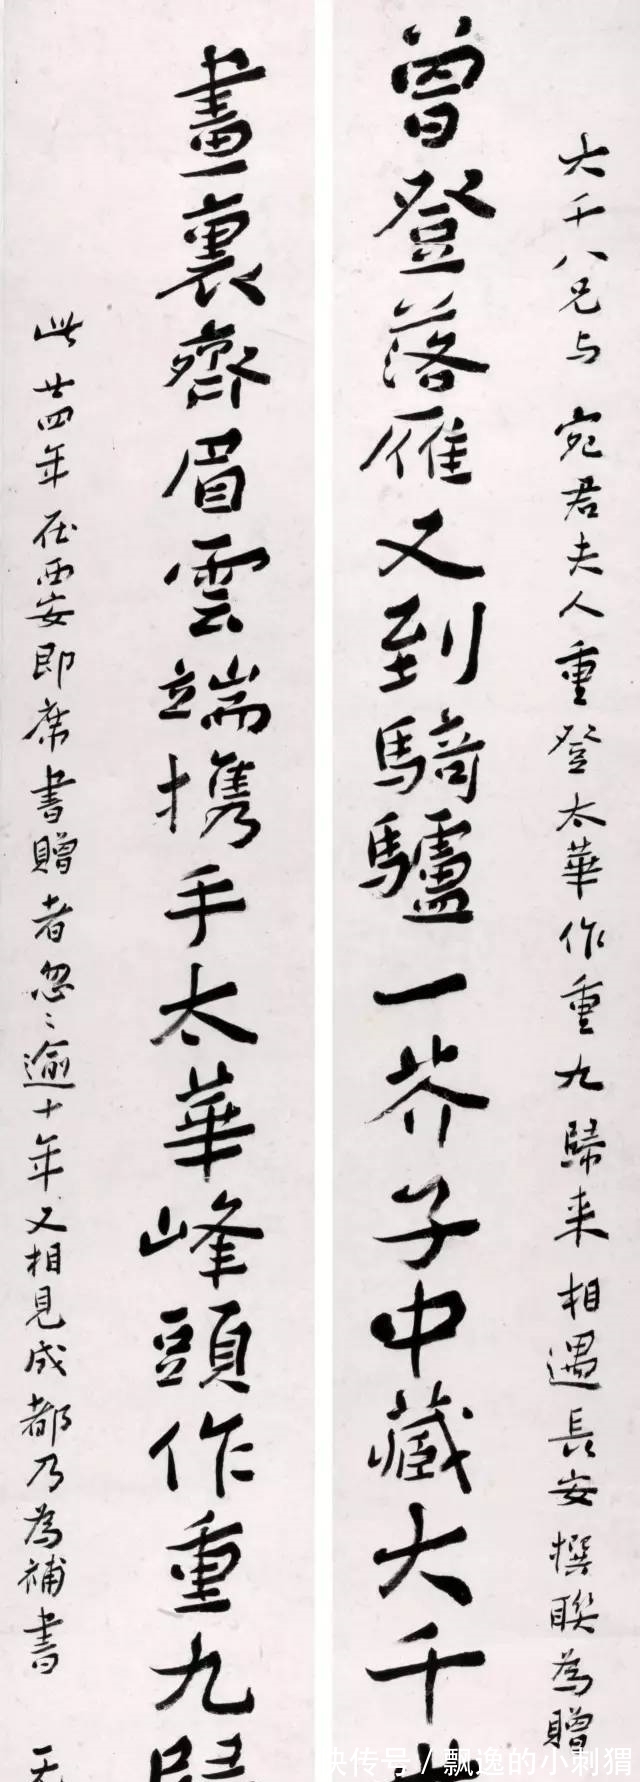 大千八兄与宛君夫人重登太華作重九歸来相遇長安撰聯為贈
曾登落雁又到騎驢一芥子中藏大千
畫裏齊眉雲端携手太華峰頭作重九
此廿四年在西安即席書贈者忽〻逾十年又相見成都乃為補書
快传号 / 飘逸的小刺猬